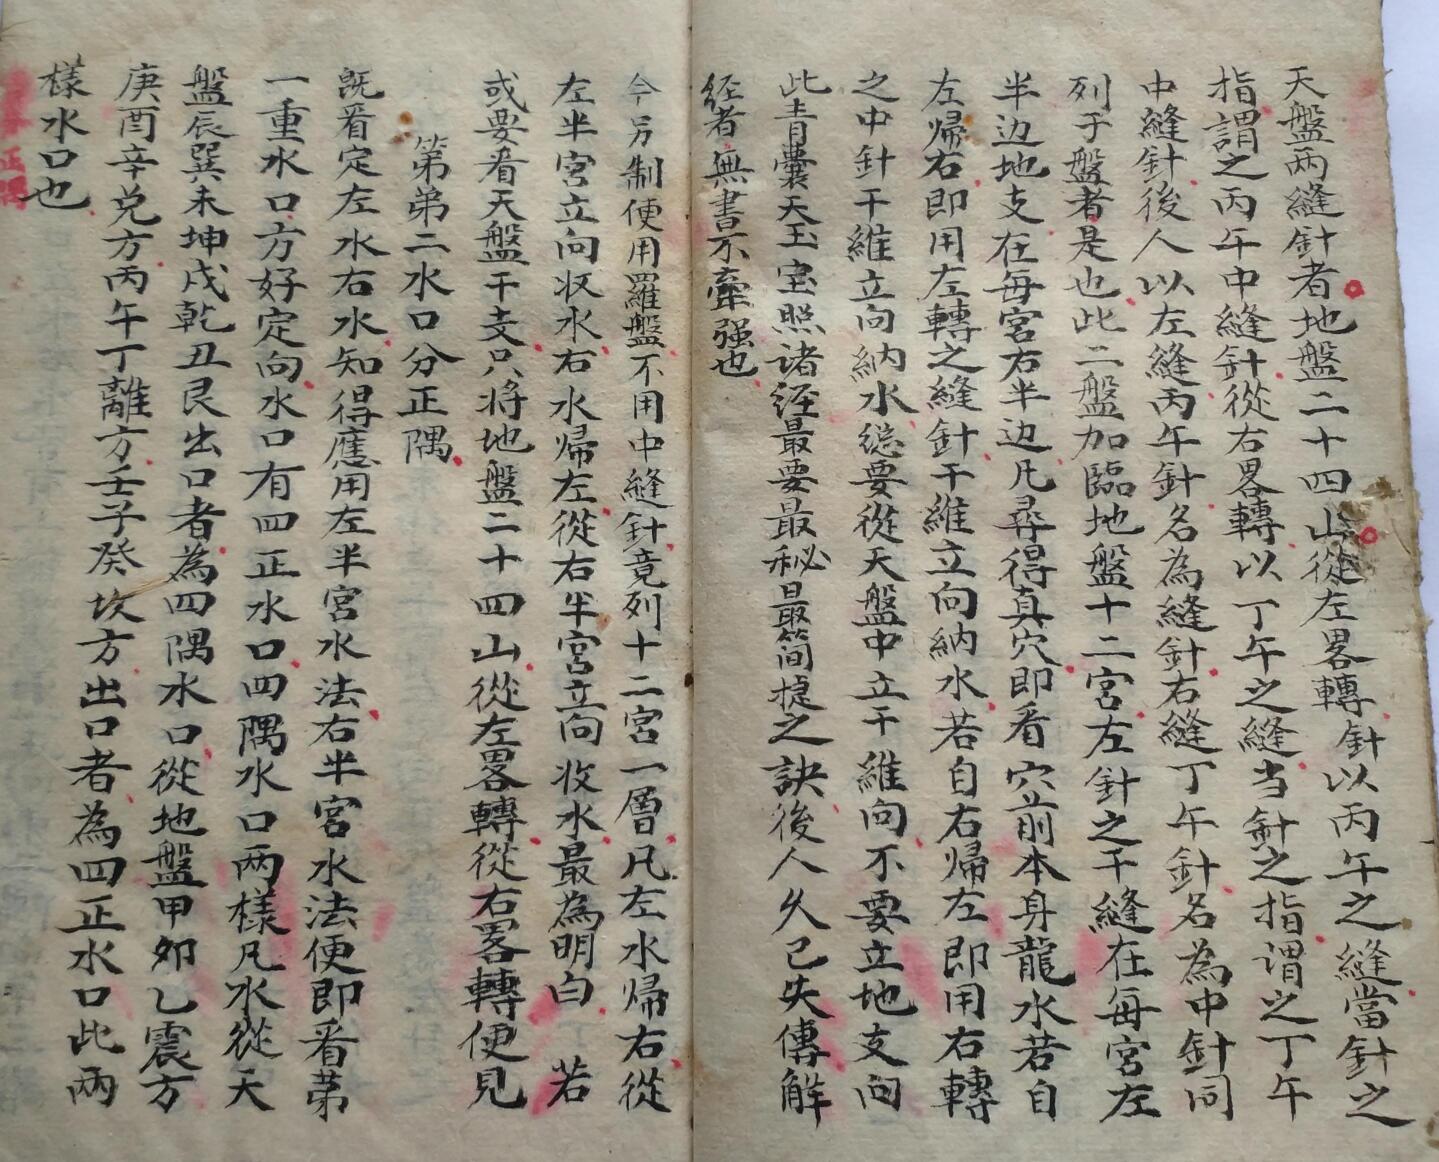 天盤兩縫針者地盤二十四山從左畧轉針以丙午之縫當針之
指謂之丙午中縫針從右畧轉以丁午之縫当針之指謂之丁午
中縫針後人以左縫丙午針名為縫針右縫丁午針名為中針同
列于盤者是也此二盤加臨地盤十二宮左針之干縫在每宮左
半边地支在每宮右半边凡尋得真穴即看穴前本身龍水若自
左歸右即用左轉之縫針干維立向納水若自右歸左即用右轉
之中針干維立向納水緫要從天盤中立干維向不要立地支向
此青囊天玉宝照诸経最要最秘最简捷之訣後人久已失傳解
経者無書不牽强也
今另制使用羅盤不用中縫針竟列十二宮一層凡左水歸右從
左半宮立向收水右水歸左從右半宮立向收水最為明白丁若
或要看天盤干支只将地盤二十四山從左畧轉從右畧轉便見
第第二水口分正隅
既看定左水右水知得應用左半宮水法右半宮水法便即看苐
一重水口方好定向水口有四正水口四隅水口兩樣凡水從天
盤辰巽未坤戌乾丑艮出口者為四隅水口從地盤甲夘乙震方
庚酉辛兑方丙午丁離方壬子癸坎方出口者為四正水口此兩
樣水口也